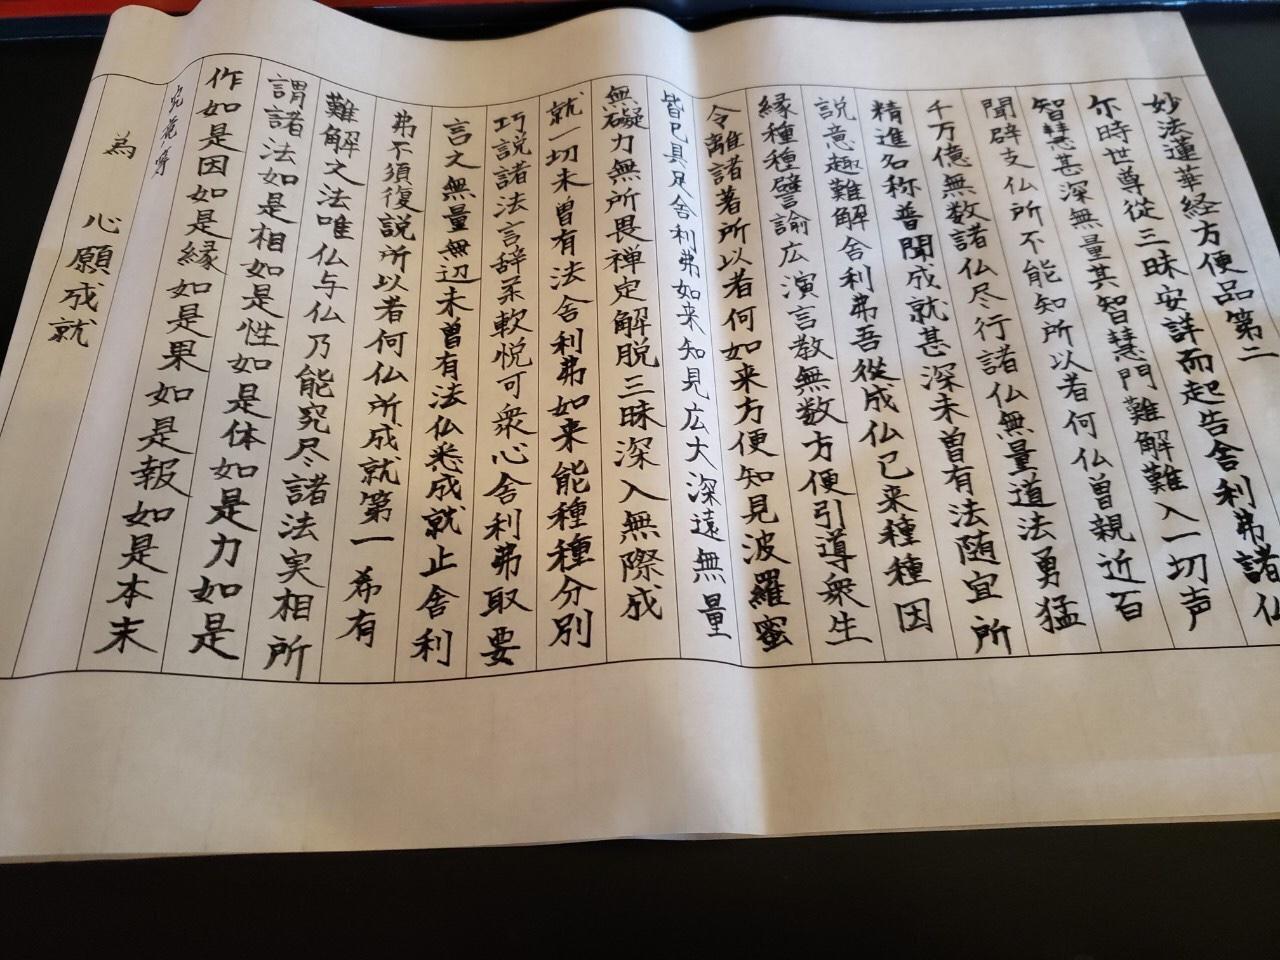 妙法蓮華経方便品第二
尓時世尊從三昧安詳而起告舎利弗諸仏
智慧甚深無量其智慧門難解難入一切声
聞辟支仏所不能知所以者何仏曽親近百
千万億無数諸仏尽行諸仏無量道法勇猛
精進名称普聞成就甚深未曽有法随宜所
説意趣難解舎利弗吾從成仏已来種種因
縁種種譬諭広演言教無数方便引導衆生
令離諸著所以者何如来方便知見波羅蜜
皆已具足舎利弗如来知見広大深遠無量
無礙力無所畏禅定解脱三昧深入無際成
就一切未曽有法舎利弗如来能種種分別
巧説諸法言辞柔軟悦可衆心舎利弗取要
言之無量無辺未曽有法仏悉成就止舎利
弗不須復説所以者何仏所成就第一希有
難解之法唯仏与仏乃能究尽諸法実相所
謂諸法如是相如是性如是体如是力如是
作如是因如是縁如是果如是報如是本末
究竟等
為 心願成就